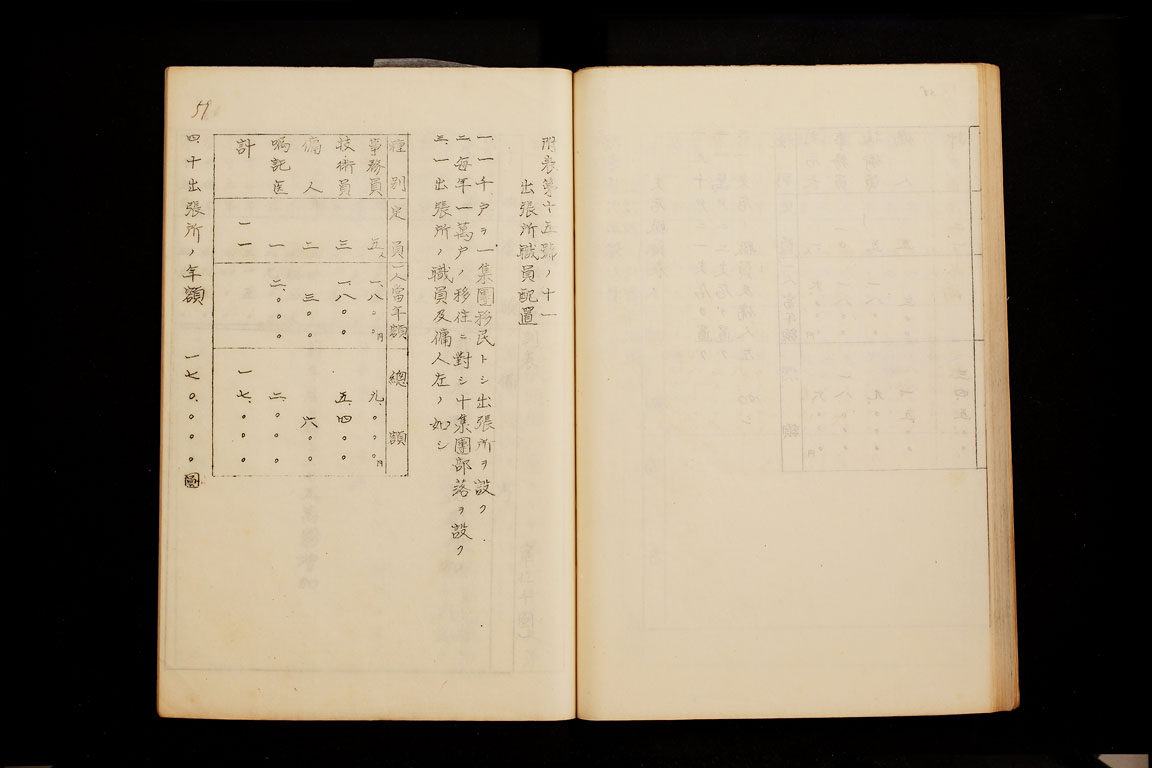 附表第十五號ノ十一
出張所職員配置
一、一千戸ヲ一集團移民トシ出張所ヲ設ク
二、每年一萬戸ノ移住ニ對シ十集團部落ヲ設ク
三、一出張所ノ職員及傭人左ノ如シ
種別 定員 一人當年額 總額
事務員 五人 一、八〇〇円 九、〇〇〇円
技術員 三 一、八〇〇 五、四〇〇
傭人 二 三〇〇 六〇〇
嘱託医 一 二、〇〇〇 二、〇〇〇
計 一一 一七、〇〇〇
四、十出張所ノ年額 一七〇、〇〇〇圓
51